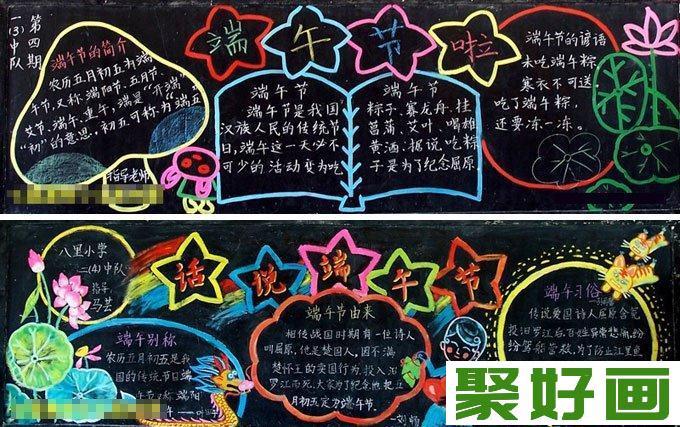 第四期
一(3)中队
端午节啦
端午节的简介
农历五月初五为端
午节,又称,端阳节、五月节、
艾节、端午、重午,端是“开端”
“初”的意思,初五可称为端五
指导老师
端午节
端午节是我国
汉族人民的传统节
日,端午这一天必不
可少的活动变为吃
端午节
粽子、赛龙舟、挂
菖蒲、艾叶、喝雄
黄酒,据说,吃粽
子是为了纪念屈原
端午节的谚语
未吃端午粽,
寒衣不可送,
吃了端午粽,
还要冻一冻。
八里小学
二(4)中队
指导
马芸
话说端午节
端午别称
农历五月初五是我
国的传统节日端
称端阳
端午节由来
相传战国时期有一位诗人
叫屈原,他是楚国人,因不满
楚怀王的卖国行为,投入汨
罗江而死,大家为了纪念他把五
月初五定为端午节。
端午习俗
传说爱国诗人屈原含冤
投汨罗江后,百姓异常悲痛,纷
纷驾船营救,为了防止江里鱼
聚好画